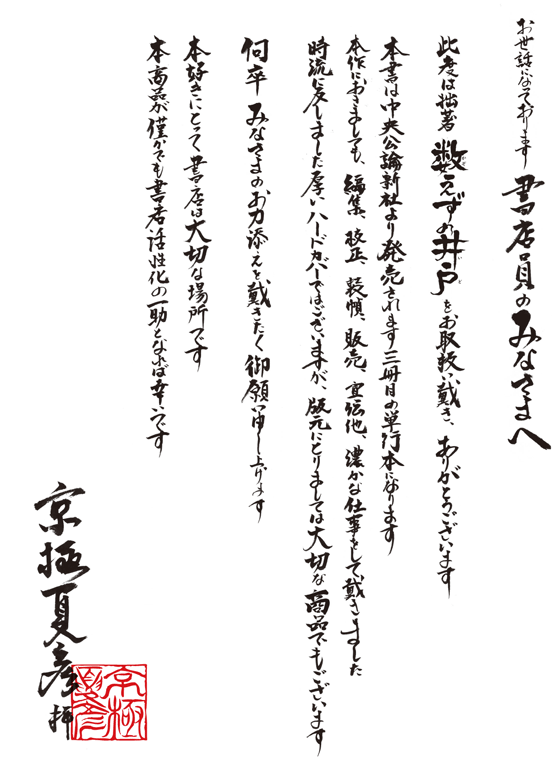 お世話になっております 書店員のみなさまへ
此度は拙著 数えずの井戸 をお取扱い戴き、ありがとうございます
本書は中央公論新社より発売されます三冊目の単行本になります
本作におきましても、編集、校正、装幀、販売、宣伝他、濃かな仕事をして戴きました
時流に反しました厚いハードカバーではございますが、版元にとりましては大切な商品でもございます
何卒 みなさまのお力添えを戴きたく御願い申し上げます
本好きにとって書店は大切な場所です
本商品が僅かでも書店活性化の一助となれば幸いです
京極夏彦 拝
京極夏彦